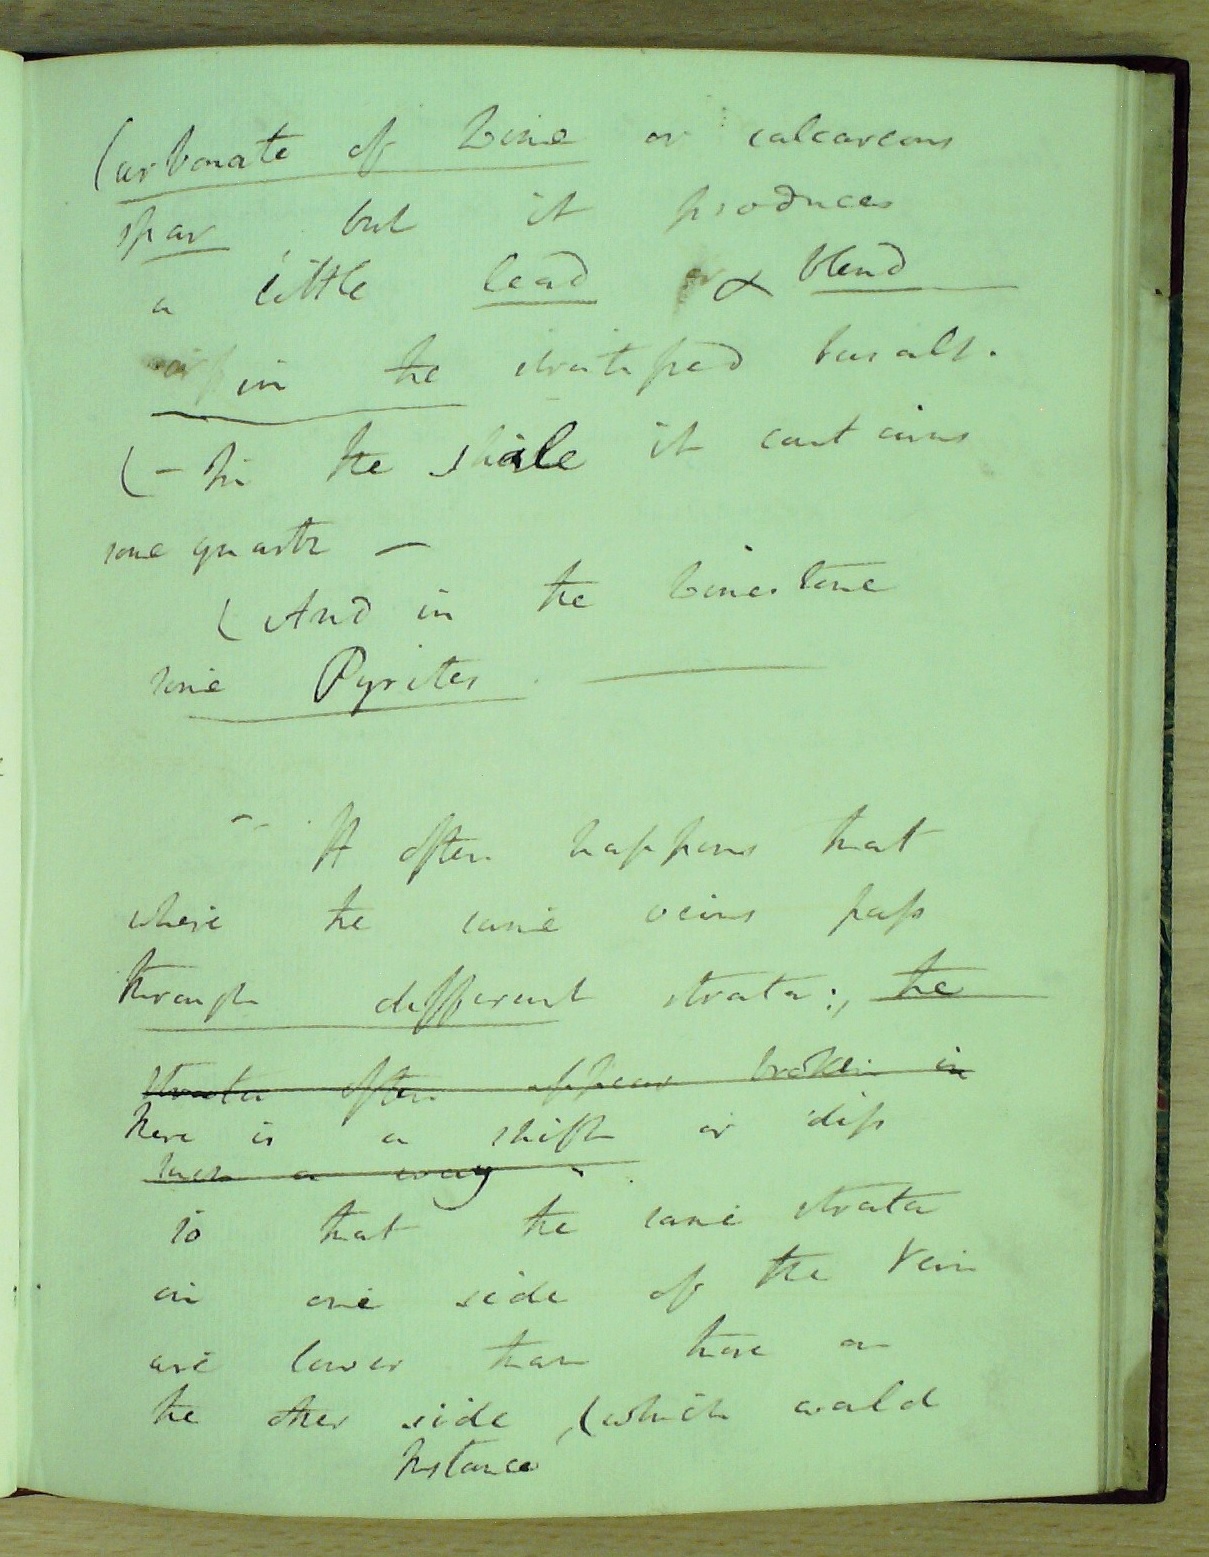 Carbonate of Lime or calcareous
spar, but it produces
a little lead & blend
in the stratified basalt.
(– In the shale it contains
some quartz –
(And in the Limestone
some Pyrites. —
It often happens that
where the same veins pass
through different strata:, the
strata often appear broken in
there is a shift or dip
such a way
so that the same strata
on one side of the Vein
are lower than those on
the other side, (which would
Instance